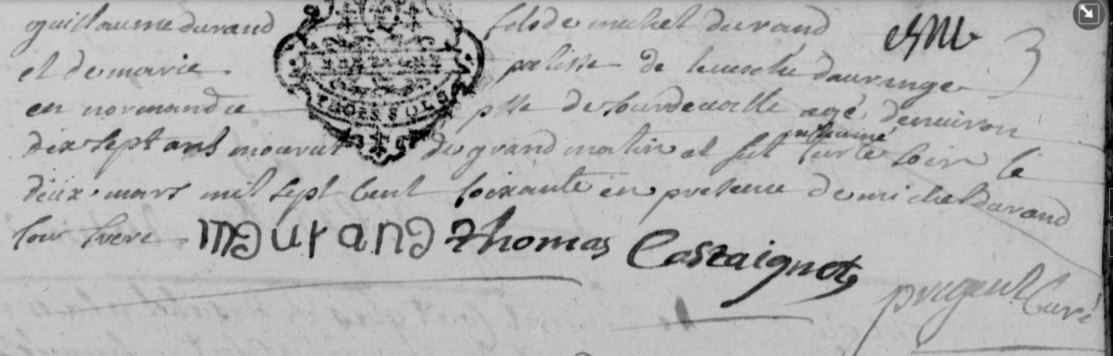 guillaume durand fils de michel durand
et de marie de leveché davrange
en normandie psse de agé denviron
dix sept ans mourut du grand matin et fut inhumé sur le soir le
deux mars mil sept cent soixante en presence de michel durand
son frere. mdurand thomas Castaignet
pregent Curé